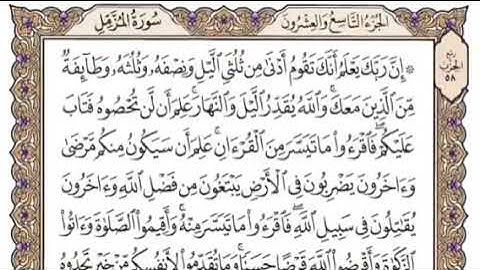 الجزء التاسع والعشرون
سورة المزمل
ربع
الحزب
٥٨
۞ إِنَّ رَبَّكَ يَعْلَمُ أَنَّكَ تَقُومُ أَدْنَىٰ مِن ثُلُثَيِ ٱلَّيْلِ وَنِصْفَهُۥ وَثُلُثَهُۥ وَطَآئِفَةٌ
مِّنَ ٱلَّذِينَ مَعَكَۚ وَٱللَّهُ يُقَدِّرُ ٱلَّيْلَ وَٱلنَّهَارَۚ عَلِمَ أَن لَّن تُحْصُوهُ فَتَابَ
عَلَيْكُمْۖ فَٱقْرَءُوا۟ مَا تَيَسَّرَ مِنَ ٱلْقُرْءَانِۚ عَلِمَ أَن سَيَكُونُ مِنكُم مَّرْضَىٰ
وَءَاخَرُونَ يَضْرِبُونَ فِى ٱلْأَرْضِ يَبْتَغُونَ مِن فَضْلِ ٱللَّهِ وَءَاخَرُونَ
يُقَٰتِلُونَ فِى سَبِيلِ ٱللَّهِۖ فَٱقْرَءُوا۟ مَا تَيَسَّرَ مِنْهُۚ وَأَقِيمُوا۟ ٱلصَّلَوٰةَ وَءَاتُوا۟
ٱلزَّكَوٰةَ وَأَقْرِضُوا۟ ٱللَّهَ قَرْضًا حَسَنًاۚ وَمَا تُقَدِّمُوا۟ لِأَنفُسِكُم مِّنْ خَيْرٍ تَجِدُوهُ